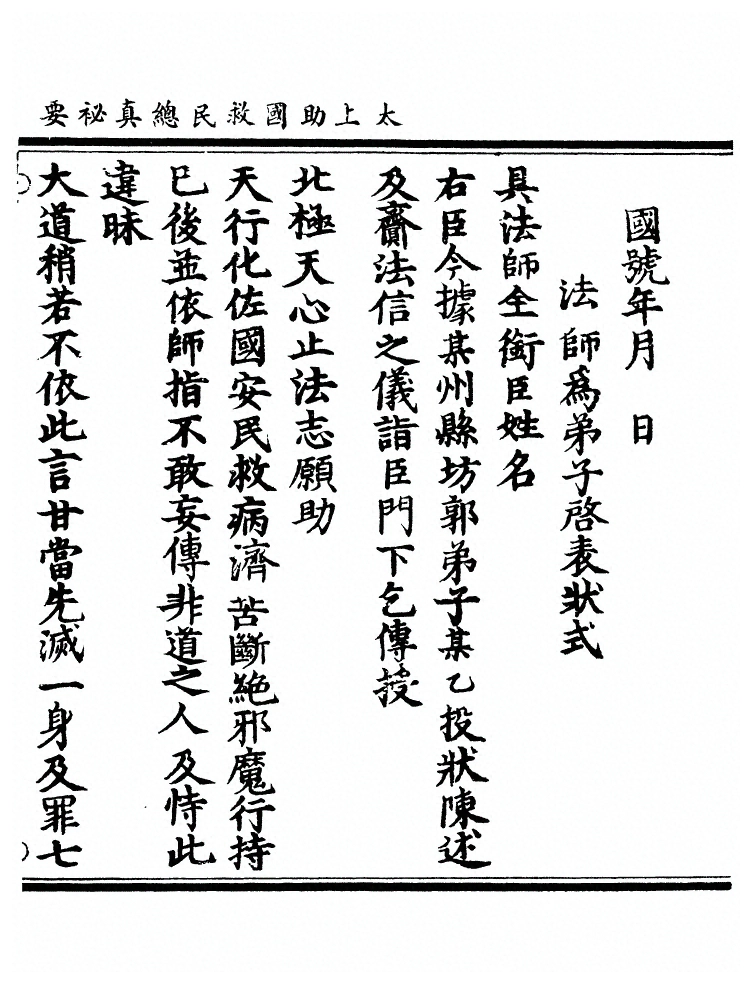 太上助國救民總真祕要
國號年月　日
法師爲弟子啓表狀式
具法師全銜臣姓名
右臣今據某州縣坊郭弟子某乙投狀陳述
及齎法信之儀詣臣門下乞傳授
北極天心正法志願助
天行化佐國安民救病濟苦斷絶邪魔行持
已後並依師指不敢妄傳非道之人及恃此
違昧
大道稍若不依此言甘當先滅一身及罪七